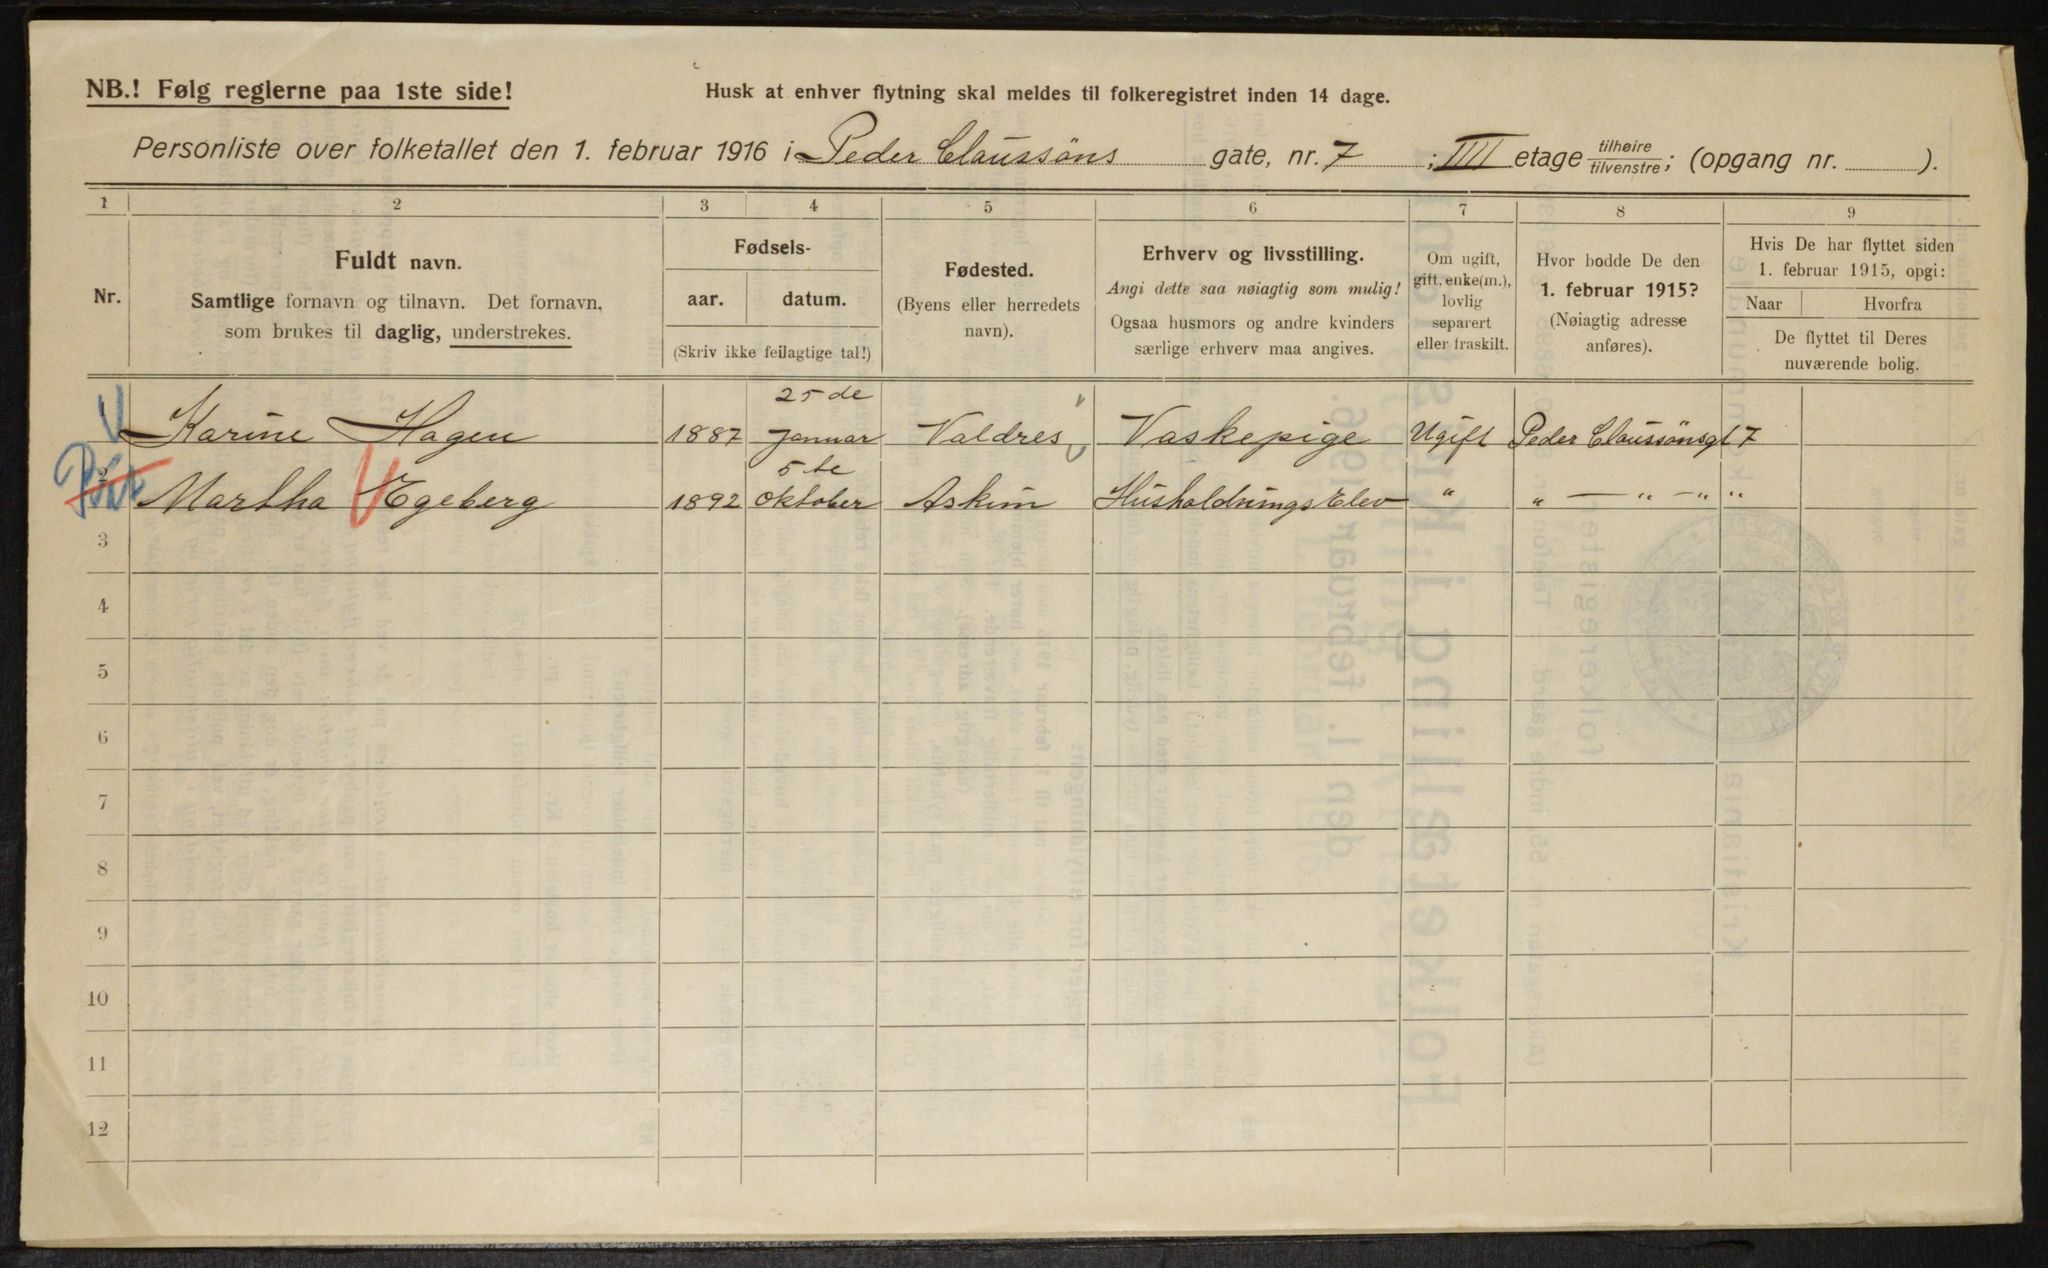 NB.! Følg reglerne paa 1ste side!
Husk at enhver flytning skal meldes til folkeregistret inden 14 dage.
Personliste over folketallet den 1. februar 1916 i Peder Claussöns gate, nr. 7 ; III etage tilhøire/tilvenstre; (opgang nr. ).
1 2 3 4 5 6 7 8 9
Nr.
Fuldt navn.
Samtlige fornavn og tilnavn. Det fornavn,
som brukes til daglig, understrekes.
Fødsels-
aar. datum.
(Skriv ikke feilagtige tal!)
Fødested.
(Byens eller herredets
navn).
Erhverv og livsstilling.
Angi dette saa nøiagtig som mulig!
Ogsaa husmors og andre kvinders
særlige erhverv maa angives.
Om ugift,
gift, enke(m.),
lovlig
separert
eller fraskilt.
Hvor bodde De den
1. februar 1915?
(Nøiagtig adresse
anføres).
Hvis De har flyttet siden
1. februar 1915, opgi:
Naar Hvorfra
De flyttet til Deres
nuværende bolig.
25de
Karine Hagen 1887 Januar Valdres Vaskepige Ugift Peder Claussönsgt 7
5te
2 Martha Egeberg 1892 Oktober Askim Husholdnings Elev " " — " — " "
3
4
5
6
7
8
9
10
11
12